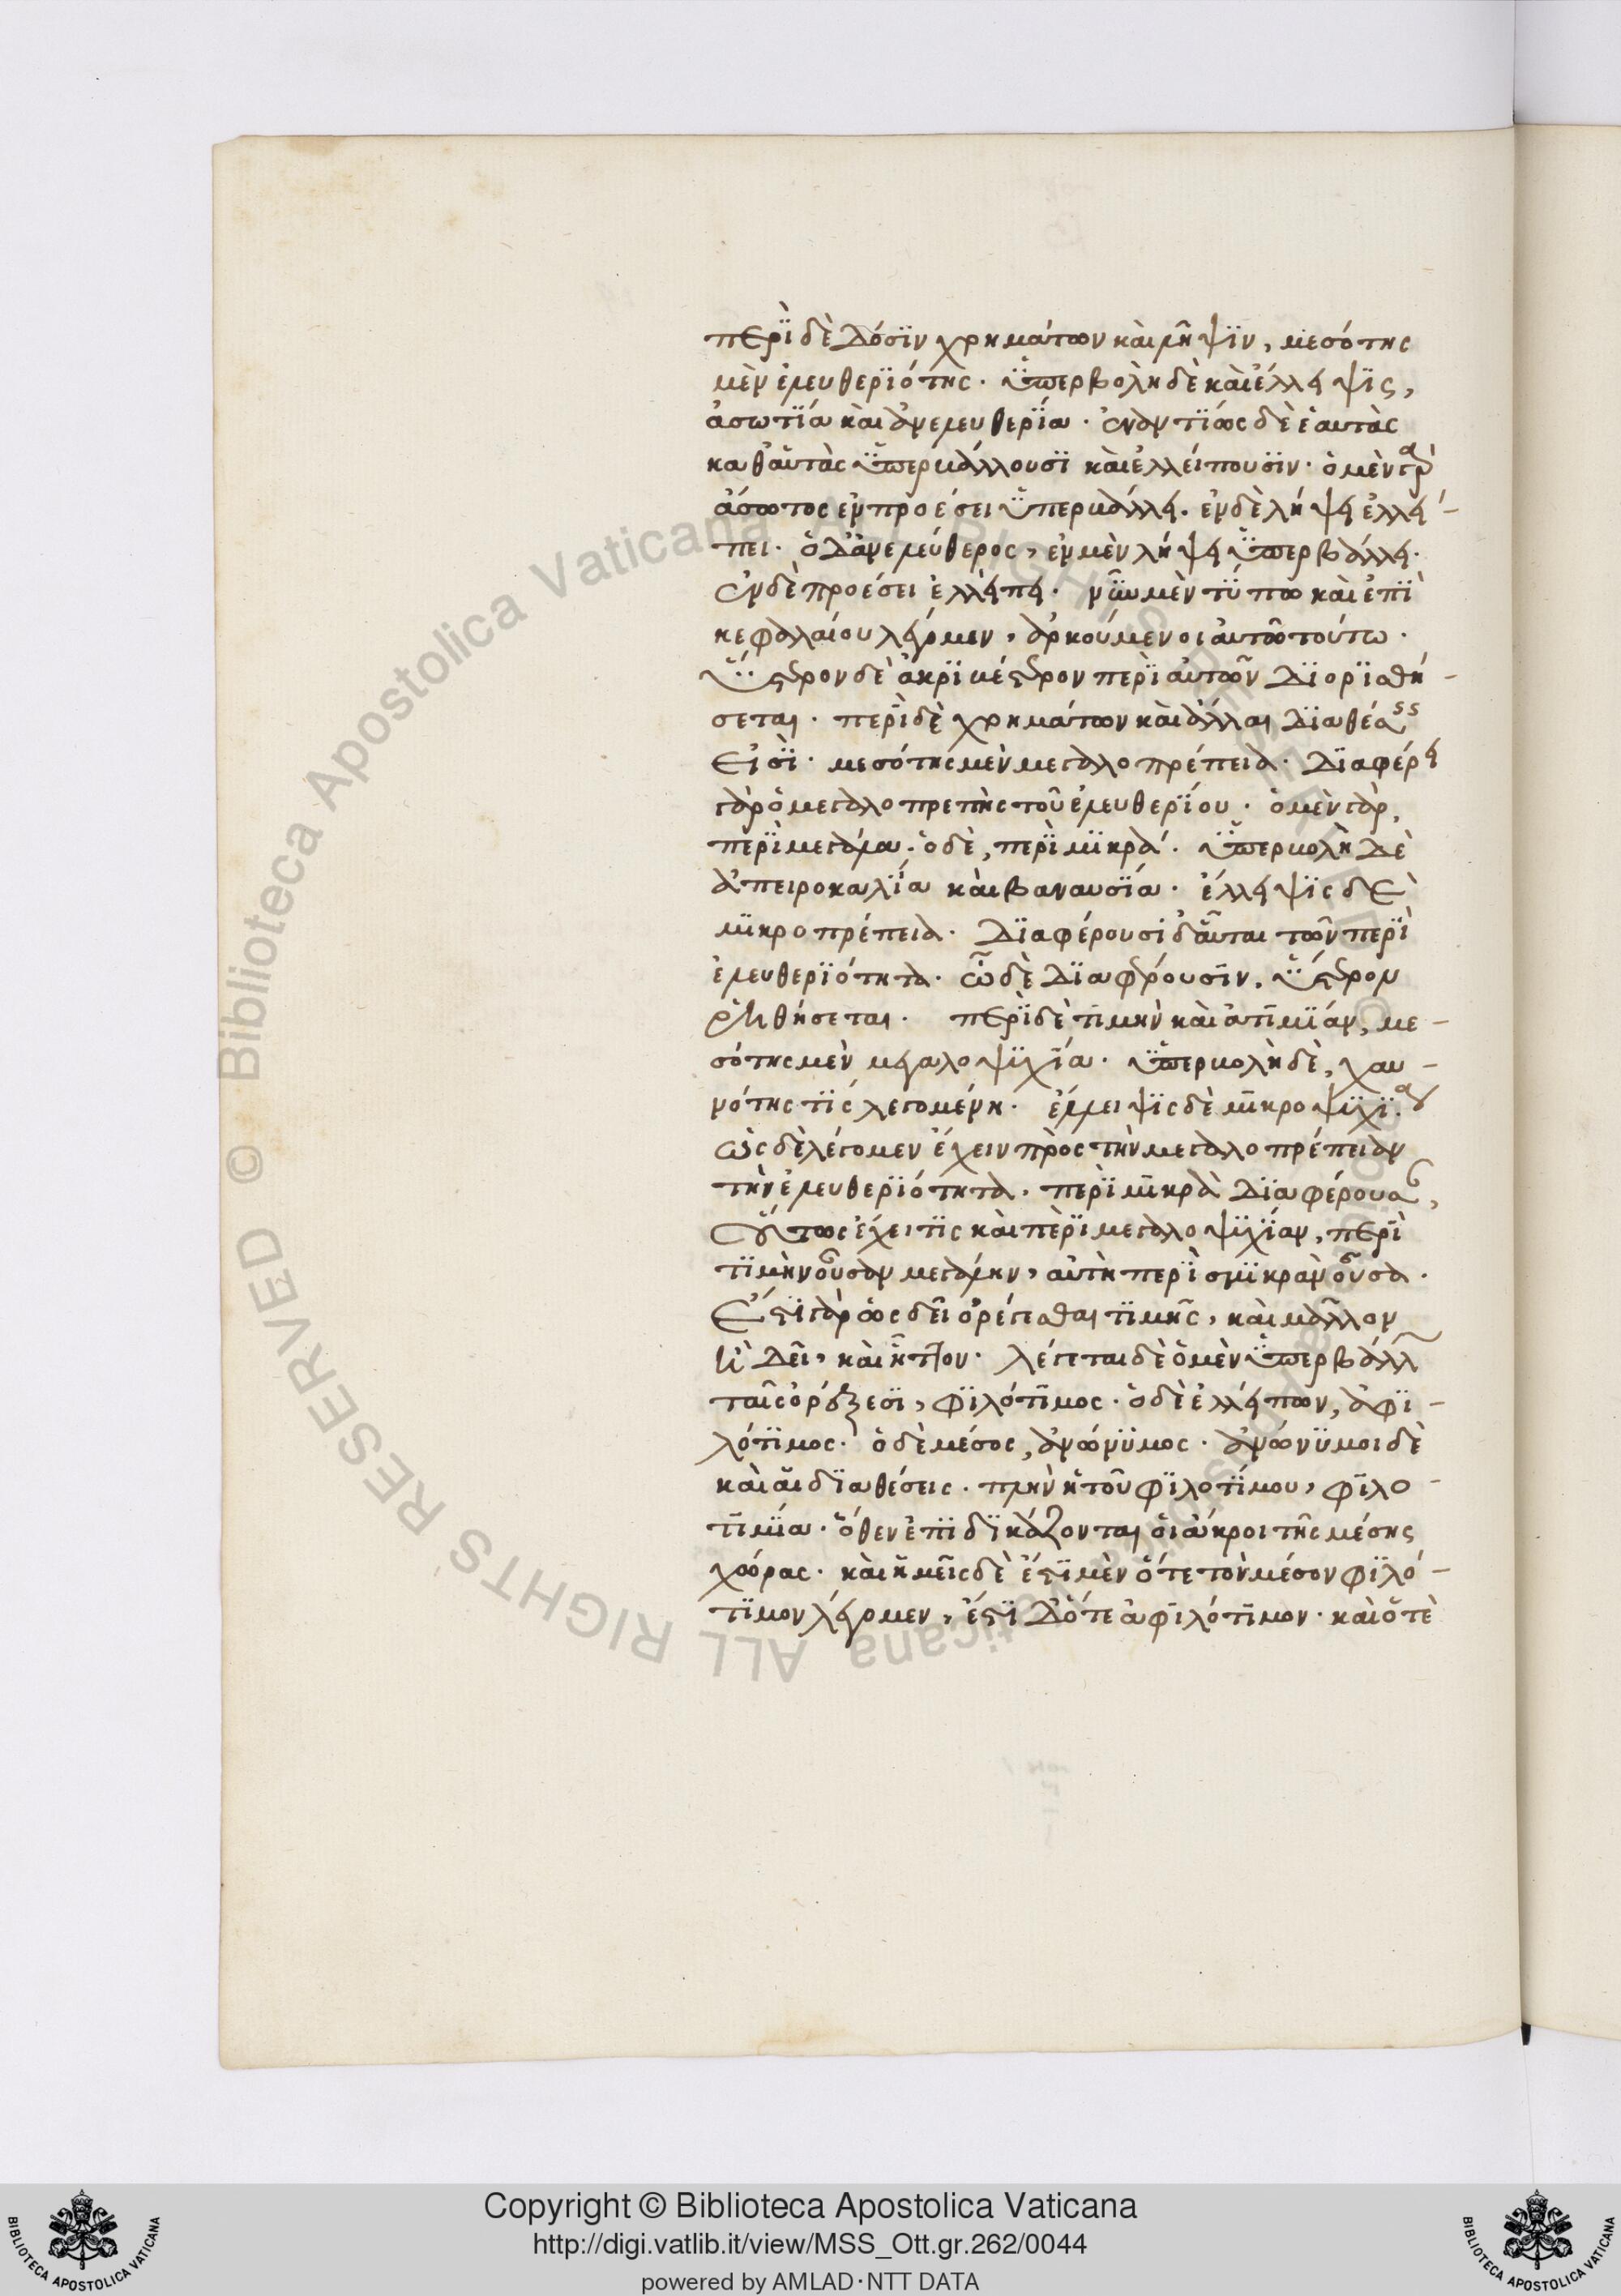 περὶ δὲ δόσϊν χρημάτων καὶ λῆψϊν, μεσότης
μὲν ἐλευθερϊότης. ὑπερβολὴ δὲ καὶ ἔλλειψϊς,
ἀσωτΐα καὶ ἀνελευθερΐα. ἐναντΐως δὲ ἑαυτὰς
καθ' αὑτὰς ὑπερβάλλουσϊ καὶ ἐλλείπουσϊν. ὁ μὲν γὰρ
ἄσωτος ἐν προέσει ὑπερβάλλει. ἐν δὲ λήψει ἐλλεί-
πει. ὁ δ' ἀνελεύθερος, ἐν μὲν λήψει ὑπερβάλλει.
ἐν δὲ προέσει ἐλλείπει. νῦν μὲν τύπω καὶ ἐπὶ
κεφαλαίου λέγομεν, ἀρκούμενοι αὐτῶ τούτω.
ὕστερον δὲ ἀκρϊβέστερον περὶ αὐτῶν διορϊσθή-
σεται. περὶ δὲ χρημάτων καὶ ἄλλαι διαθέσεις
εἰσΐ. μεσότης μὲν μεγαλοπρέπεια. διαφέρει
γὰρ ὁ μεγαλοπρεπὴς τοῦ ἐλευθερΐου. ὁ μὲν γὰρ,
περὶ μεγάλα. ὁ δὲ, περὶ μϊκρά. ὑπερβολὴ δὲ
ἀπειροκαλΐα καὶ βαναυσΐα. ἔλλειψϊς δὲ
μϊκροπρέπεια. διαφέρουσι δ' αὗται τῶν περὶ
ἐλευθερϊότητα. ὧ δὲ διαφέρουσϊν. ὕστερον
ῥηθήσεται. περὶ δὲ τϊμὴν καὶ ἀτϊμΐαν, με-
σότης μὲν μεγαλοψϋχΐα. ὑπερβολὴ δὲ, χαυ-
νότης τϊς λεγομένη. ἔλλειψϊς δὲ μϊκροψϋχΐα.
ὡς δὲ λέγομεν ἔχειν πρὸς τὴν μεγαλοπρέπειαν
τὴν ἐλευθερϊότητα. περὶ μϊκρὰ διαφέρουσαν,
οὕτως ἔχει τϊς καὶ περὶ μεγαλοψϋχΐαν, περὶ
τϊμὴν οὖσαν μεγάλην, αὐτὴ περὶ σμϊκρὰν οὖσα.
ἔστϊ γὰρ ὡς δεῖ ὀρέγεσθαι τϊμῆς, καὶ μᾶλλον
ἢ δεῖ, καὶ ἧττον. λέγεται δὲ ὁ μὲν ὑπερβάλλων
ταῖς ὀρέξεσϊ, φϊλότϊμος. ὁ δὲ ἐλλείπων, ἀφϊ-
λότϊμος. ὁ δὲ μέσος, ἀνώνϋμος. ἀνώνϋμοι δὲ
καὶ αἱ διαθέσεις. πλὴν ἡ τοῦ φϊλοτΐμου, φϊλο-
τϊμΐα. ὅθεν ἐπϊδϊκάζονται οἱ ἄκροι τῆς μέσης
χώρας. καὶ ἡμεῖς δὲ ἔστϊ μὲν ὅτε τὸν μέσον φϊλό-
τϊμον λέγομεν, ἔστϊ δ' ὅτε ἀφϊλότϊμον. καὶ ὅτὲ
Copyright © Biblioteca Apostolica Vaticana
http://digi.vatlib.it/view/MSS_Ott.gr.262/0044
powered by AMLAD·NTT DATA
BIBLIOTECA APOSTOLICA VATICANA
BIBLIOTECA APOSTOLICA VATICANA